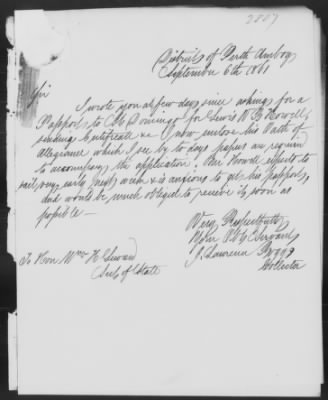 2807
District of Perth Amboy
September 6th 1861
Sir
I wrote you a few days since asking for a
Passport to St Domingo for Lewis W. Howell
sending Certificate &c I now enclose his Oath of
Allegiance which I see by to days papers are required
to accompany the application. Mr Howell expects to
sail very early next week & is anxious to get his passport,
and would be much obliged to receive it soon as
possible —
Very Respectfully
Your Obt Servant
J. Lawrence Boggs
Collector
To Hon. Wm H. Seward
Secy of State